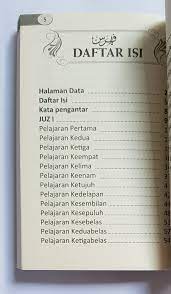 5
فهرس
DAFTAR ISI
Halaman Data
Daftar Isi
Kata pengantar
JUZ I
Pelajaran Pertama
Pelajaran Kedua
Pelajaran Ketiga
Pelajaran Keempat
Pelajaran Kelima
Pelajaran Keenam
Pelajaran Ketujuh
Pelajaran Kedelapan
Pelajaran Kesembilan
Pelajaran Kesepuluh
Pelajaran Kesebelas
Pelajaran Keduabelas
Pelajaran Ketigabelas